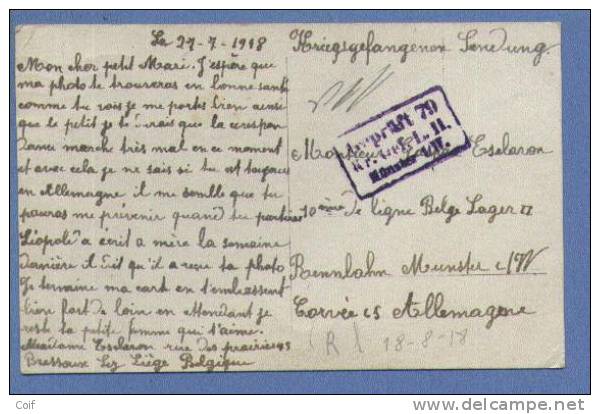 Le 27-7-1918
Mon cher petit Mari. J'espère que
ma photo te trouveras en bonne santé
comme tu vois je me portes bien ainsi
que le petit je te dirais que la corespon
dance marche très mal en ce moment
et avec cela je ne sais si tu est toujours
en Allemagne il me semble que tu
pouras me prévenir quand tu
Léopold a écrit a mère la semaine
dernière il dit qu'il a reçu ta photo
Je termine ma cart en t'embrassent
bien fort de loin en attendant je
reste ta petite femme qui t'aime.
Madame Esclaron rue des prairies 95
Bressoux Lez Liège Belgique
Kriegsgefangenen Sendung
Geprüft 79
Kr. Gef. L. II.
Münster i/W.
Monsieur Esclaron
10 ième De ligne Belge Lager II
Rennbahn Munster i/W
Corvée 65 Allemagne
(R) 18-8-18
Coif
http://www.delcampe.net